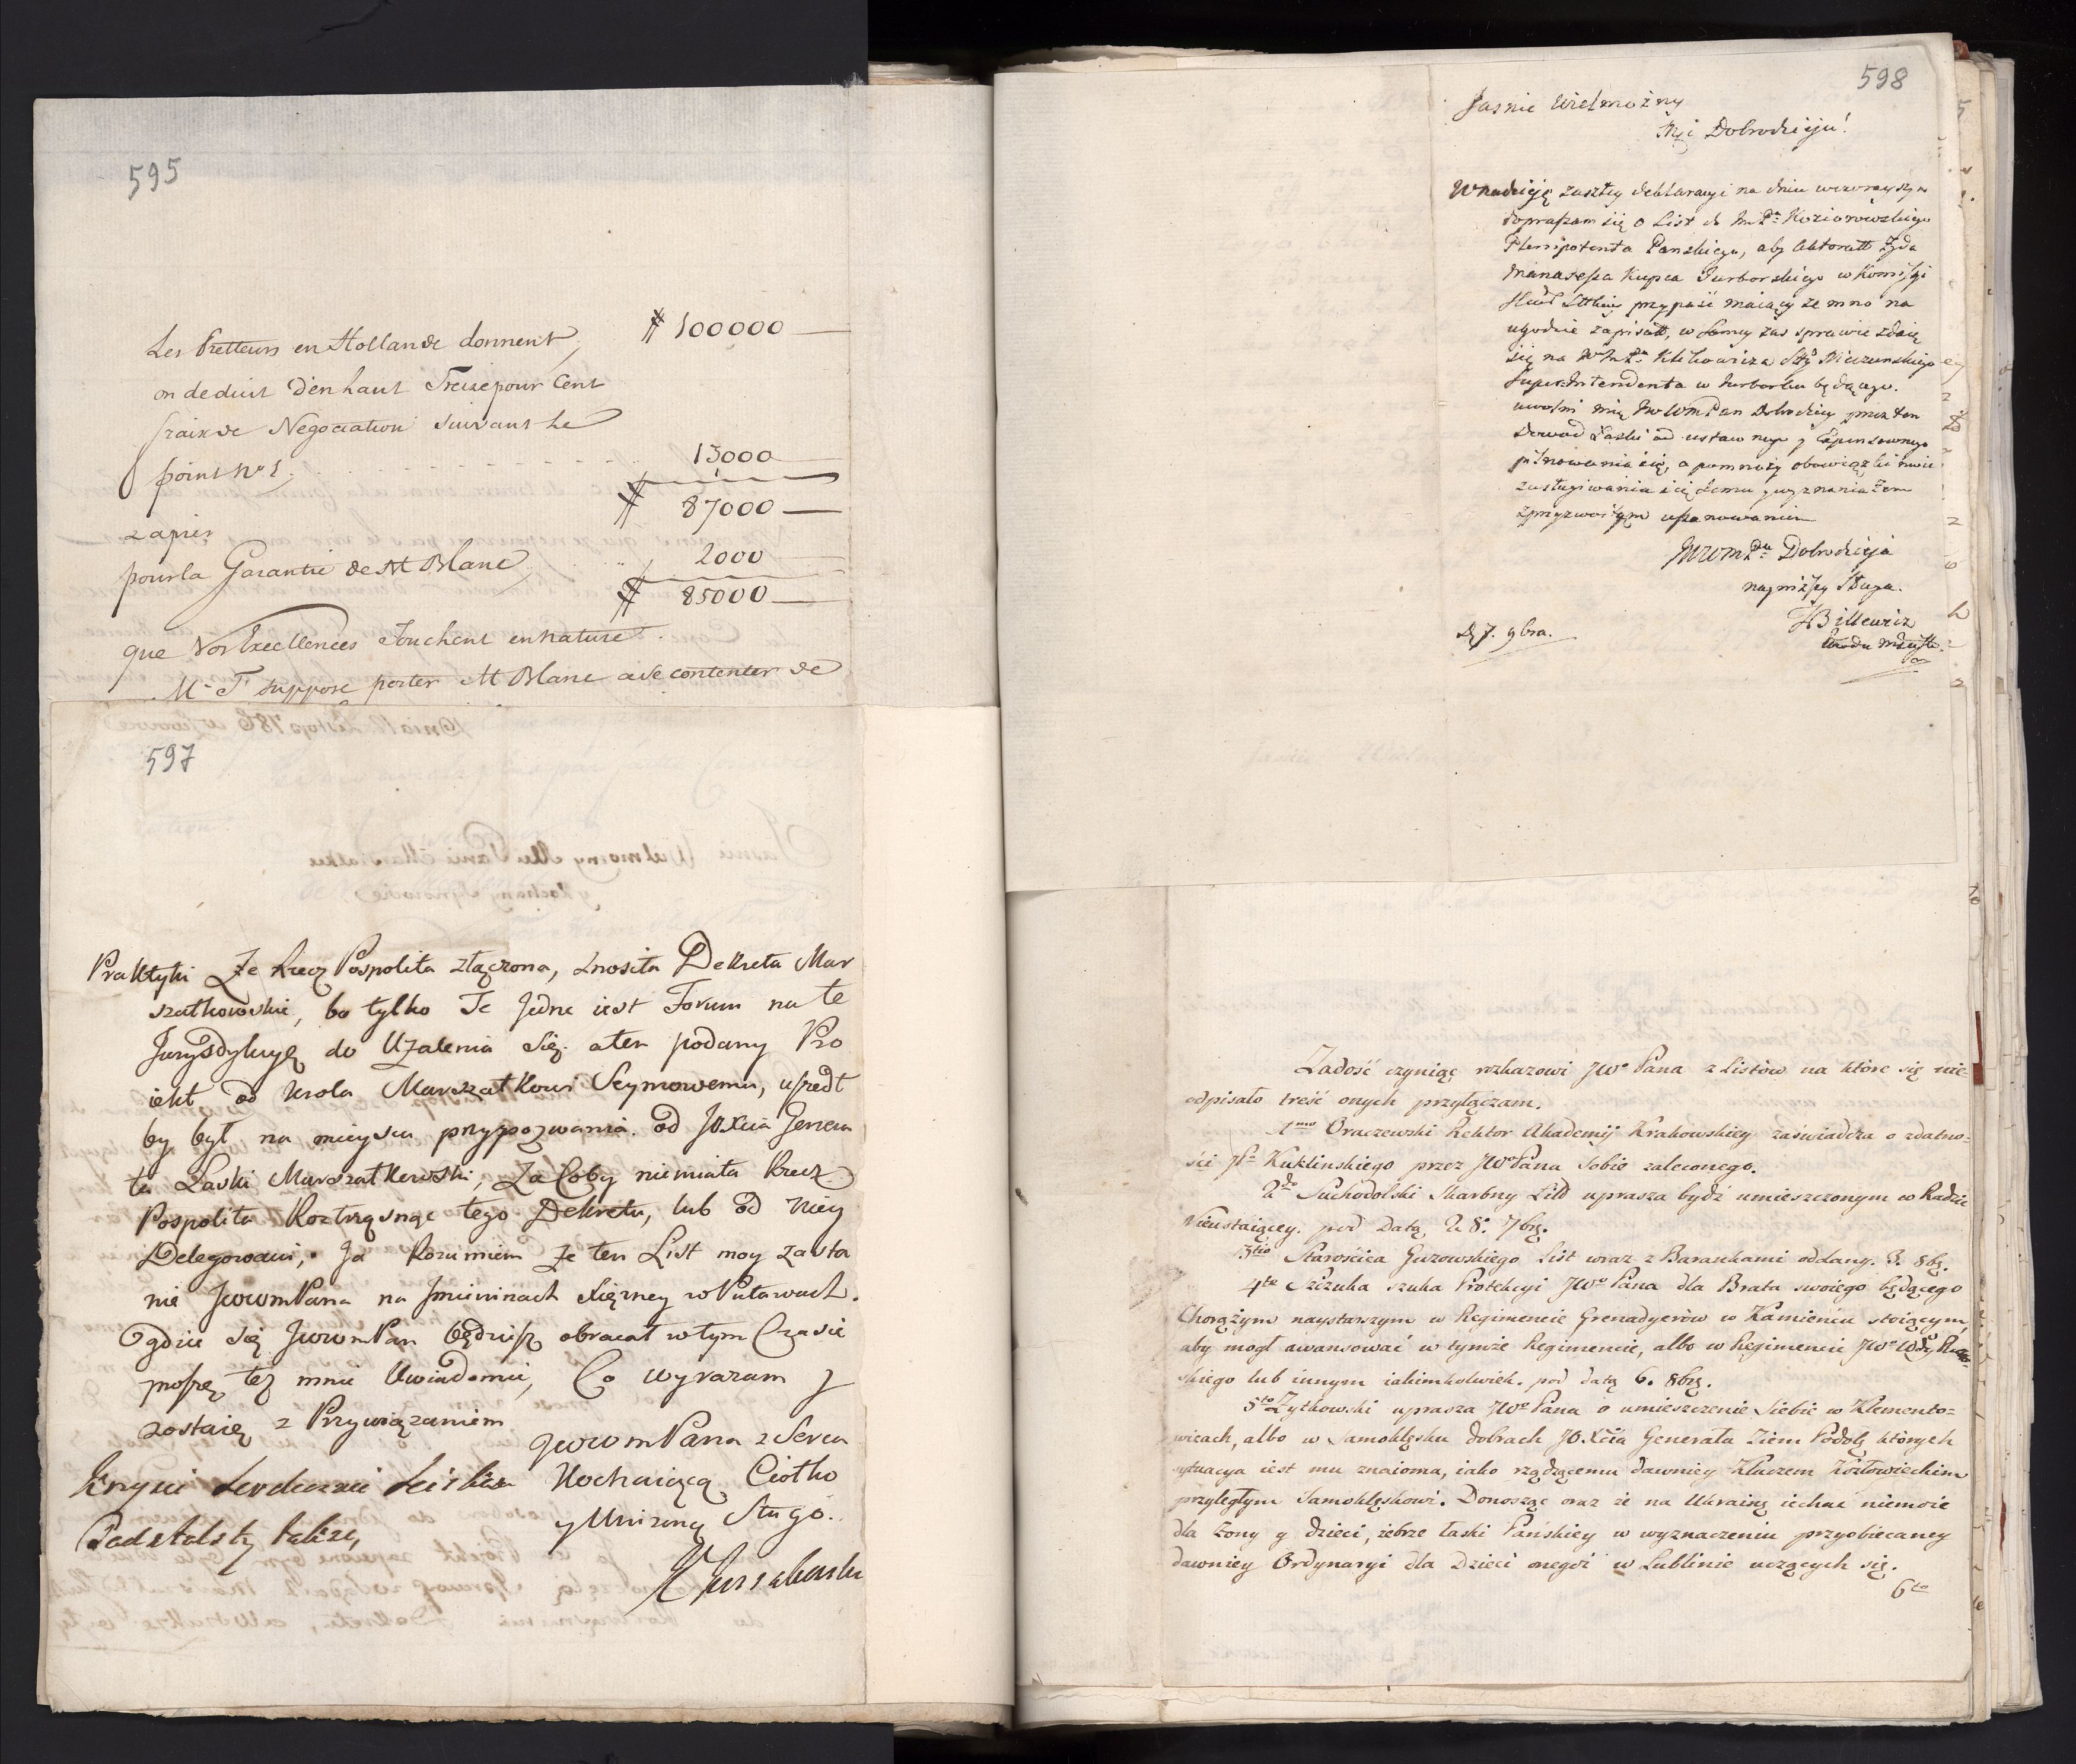 595
Les Pretteurs en Hollande donnent, # 100000
on deduit d'en haut Treize pour Cent
fraix de Negociation suivant le
point No 1. 13000
# 87000
zapis
pour la Garantie de M Blanc 2000
# 85000
que Vos Excellences Touchent en nature.
Mr T suppose porter M Blanc a se contenter de
597
Praktyki Ze Rzecz Pospolita złączona, znosiła Dekreta Mar
szałkowskie, bo tylko Te Jedne iest Forum na te
Jurysdykcyę do Użalenia Się. a ten podany Pro
iekt od Krola Marszałkowi Seymowemu, uszedł
by był na mieyscu przypozwania. od JO Xcia Genera
ła Laski Marszałkowski, Za Coby niemiała Rzecz
Pospolita Roztrząsnąć tego Dekretu, lub od Niey
Delegowani, Ja Rozumiem Ze ten List moy zasta
nie JWWmPana na Imieninach Xiężney w Puławach.
Ogdzie się JWWmPan będziesz obracał w tym Czasie
proszę też mnie Uwiadomić, Co wyrazam y
zostaię z Przywiązaniem
JWWmPana z Serca
Kochaiącą Ciotko
y Unizoną Sługo.
598
Jasnie Wielmożny
Mci Dobrodzieju!
W nadzieję zaszłey deklaracyi na dniu wczorayszym
dopraszam się o List do ImPa Koziorowskiego
Plenipotenta Panskiego, aby Aktoratt Żyda
Manasessa Kupca Jurborskiego w Komissyi
Skarb Littkiey przypaść maiący ze mno na
ugodnie zapisałł, w Samey zas sprawie zdaię
się na
Super-Intendenta w Jurborku będącego.
uwolni mię JWWmPan Dobrodziey przez ten
Dowod Łaski od ustawnego y Expensownego
pilnowania się, a pomnoży obowiązki moie
zasługiwania się Jemu y wyznania żem
z przyzwoitym uszanowaniem
JWWmPa Dobrodzieja
nayniższy Sługa.
Billewicz
D 7. 9bra.
Zadość czyniąc rozkazowi JWo Pana z Listów na które się nie-
odpisało treść onych przyłączam.
1mo Oraczewski Rektor Akademij Krakowskiey zaświadcza o zdatno-
ści Pa Kuklinskiego przez JWo Pana Sobie zaleconego.
2do Suchodolski Skarbny Litd uprasza bydź umieszczonym w Radzie
Nieustaiącey. pod Datą 28. 7brę.
3tio Starościca Guzowskiego List wraz z Barankami oddany. 3. 8brę.
4to Szczuka szuka Protekcyi JWo Pana dla Brata swoiego będącego
Chorążym naystarszym w Regimencie Grenadyerów w Kamieńcu stoiącym,
aby mogł awansować w tymże Regimencie, albo w Regimencie JWo
skiego lub innym iakimkolwiek. pod datą 6. 8brę.
5to Zytkowski uprasza JWo Pana o umieszczenie Siebie w Klemento-
wicach, albo w Samoklęsku dobrach JO. Xcia Generała Ziem Podol, których
sytuacya iest mu znaioma, iako rządzącemu dawniey Kluczem Kozłowieckim
przyległym Samoklęskowi. Donosząc oraz że na Ukrainę iechać niemoże
dla żony y dzieci, żebrze łaski Pańskiey w wyznaczeniu przyobiecaney
dawniey Ordynaryi dla Dzieci onegoż w Lublinie uczących się.
6to